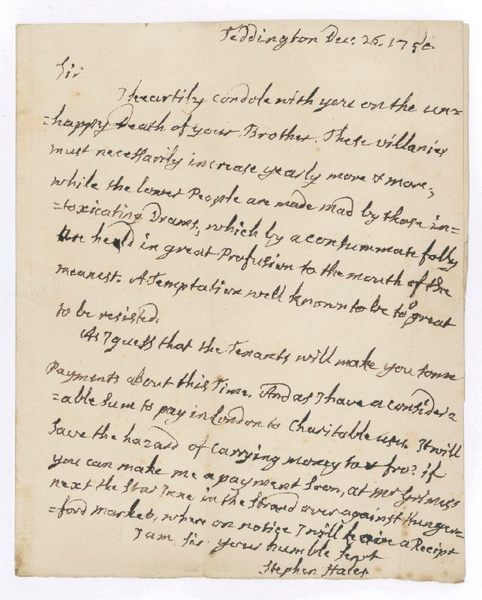 Teddington Dec. 26. 1750
Sir
I heartily condole with you on the un=
=happy Death of your Brother. These villanies
must necessarily increase yearly more & more,
while the lower People are made mad by those in=
=toxicating Drams, which by a consummate folly
are held in great Profusion to the mouth of the
meanest. A Temptation well known to be to great
to be resisted.
As I guess that the Tenants will make you some
Payments about this Time. And as I have a consider=
=able Sum to pay in London to Charitable uses. It will
save the hazard of carrying money to & fro? if
you can make me a payment soon, at Mr
next the Star Inne in the Strand over against Hunger=
=ford market, where on notice I will leave a Receipt
I am Sir your humble Servt
Stephen Hales